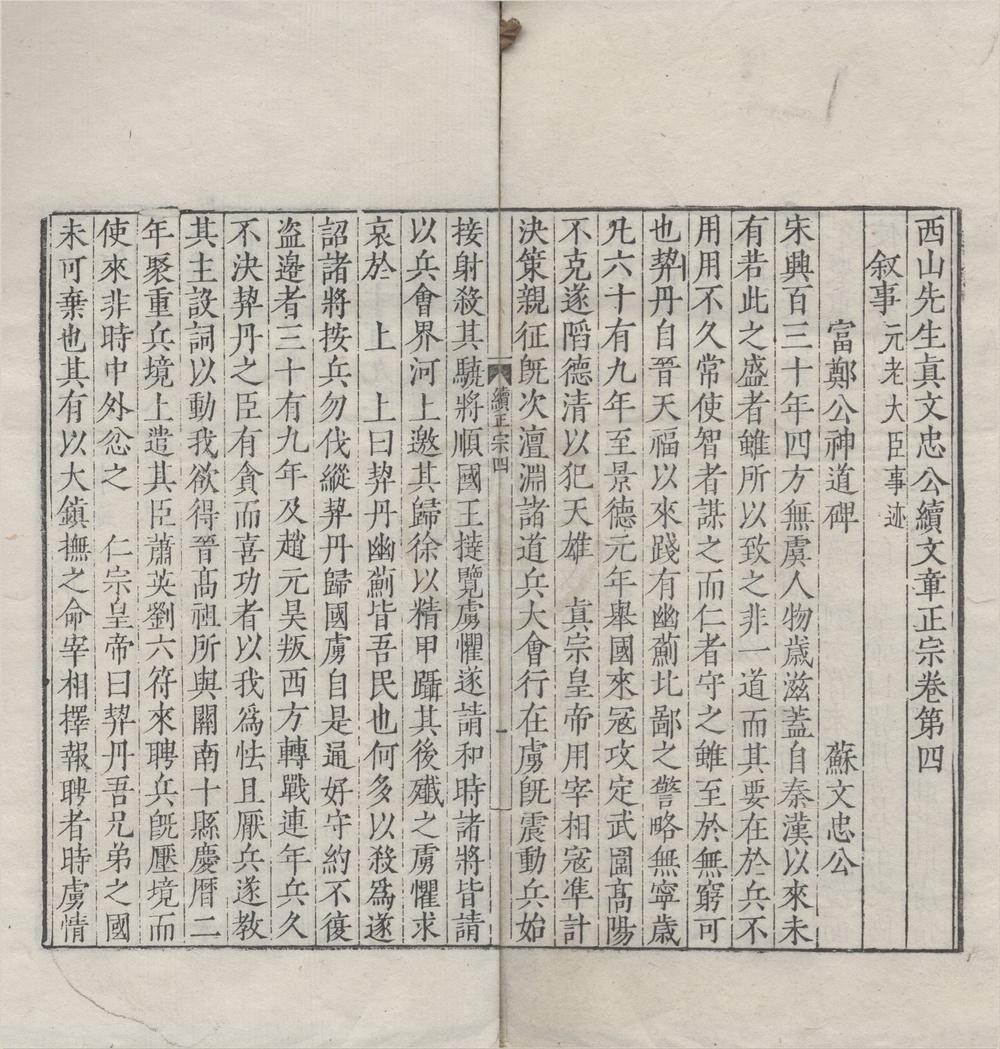 西山先生真文忠公續文章正宗卷第四
叙事 元老大臣事迹
富鄭公神道碑 蘇文忠公
宋興百三十年四方無虞人物歳滋蓋自秦漢以來未
有若此之盛者雖所以致之非一道而其要在於兵不
用用不久常使智者謀之而仁者守之雖至於無窮可
也契丹自晉天福以來踐有幽薊北鄙之警略無寧歲
凡六十有九年至景德元年舉國來冦攻定武圍髙陽
不克遂䧟德清以犯天雄 眞宗皇帝用宰相冦凖計
決策親征旣次澶淵諸道兵大會行在虜旣震動兵始
續正宗四 一
接射殺其驍將順國王撻覽虜懼遂請和時諸將皆請
以兵會界河上邀其歸徐以精甲躡其後殲之虜懼求
哀於 上 上曰契丹幽薊皆吾民也何多以殺爲遂
詔諸將按兵勿伐縱契丹歸國虜自是通好守約不復
盗邊者三十有九年及趙元昊叛西方轉戰連年兵久
不決契丹之臣有貪而喜功者以我爲怯且厭兵遂教
其主設詞以動我欲得晉髙祖所與關南十縣慶曆二
年聚重兵境上遣其臣蕭英劉六符來聘兵旣壓境而
使來非時中外忿之 仁宗皇帝曰契丹吾兄弟之國
未可棄也其有以大鎭撫之命宰相擇報聘者時虜情